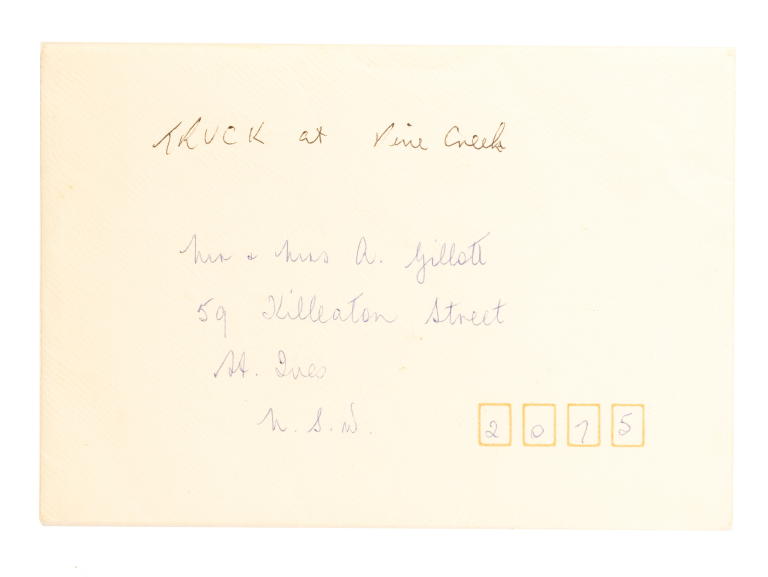 TRUCK at Pine Creek
Mr & Mrs A. Gillott
59 Killeaton Street
St. Ives
N.S.W.
2075